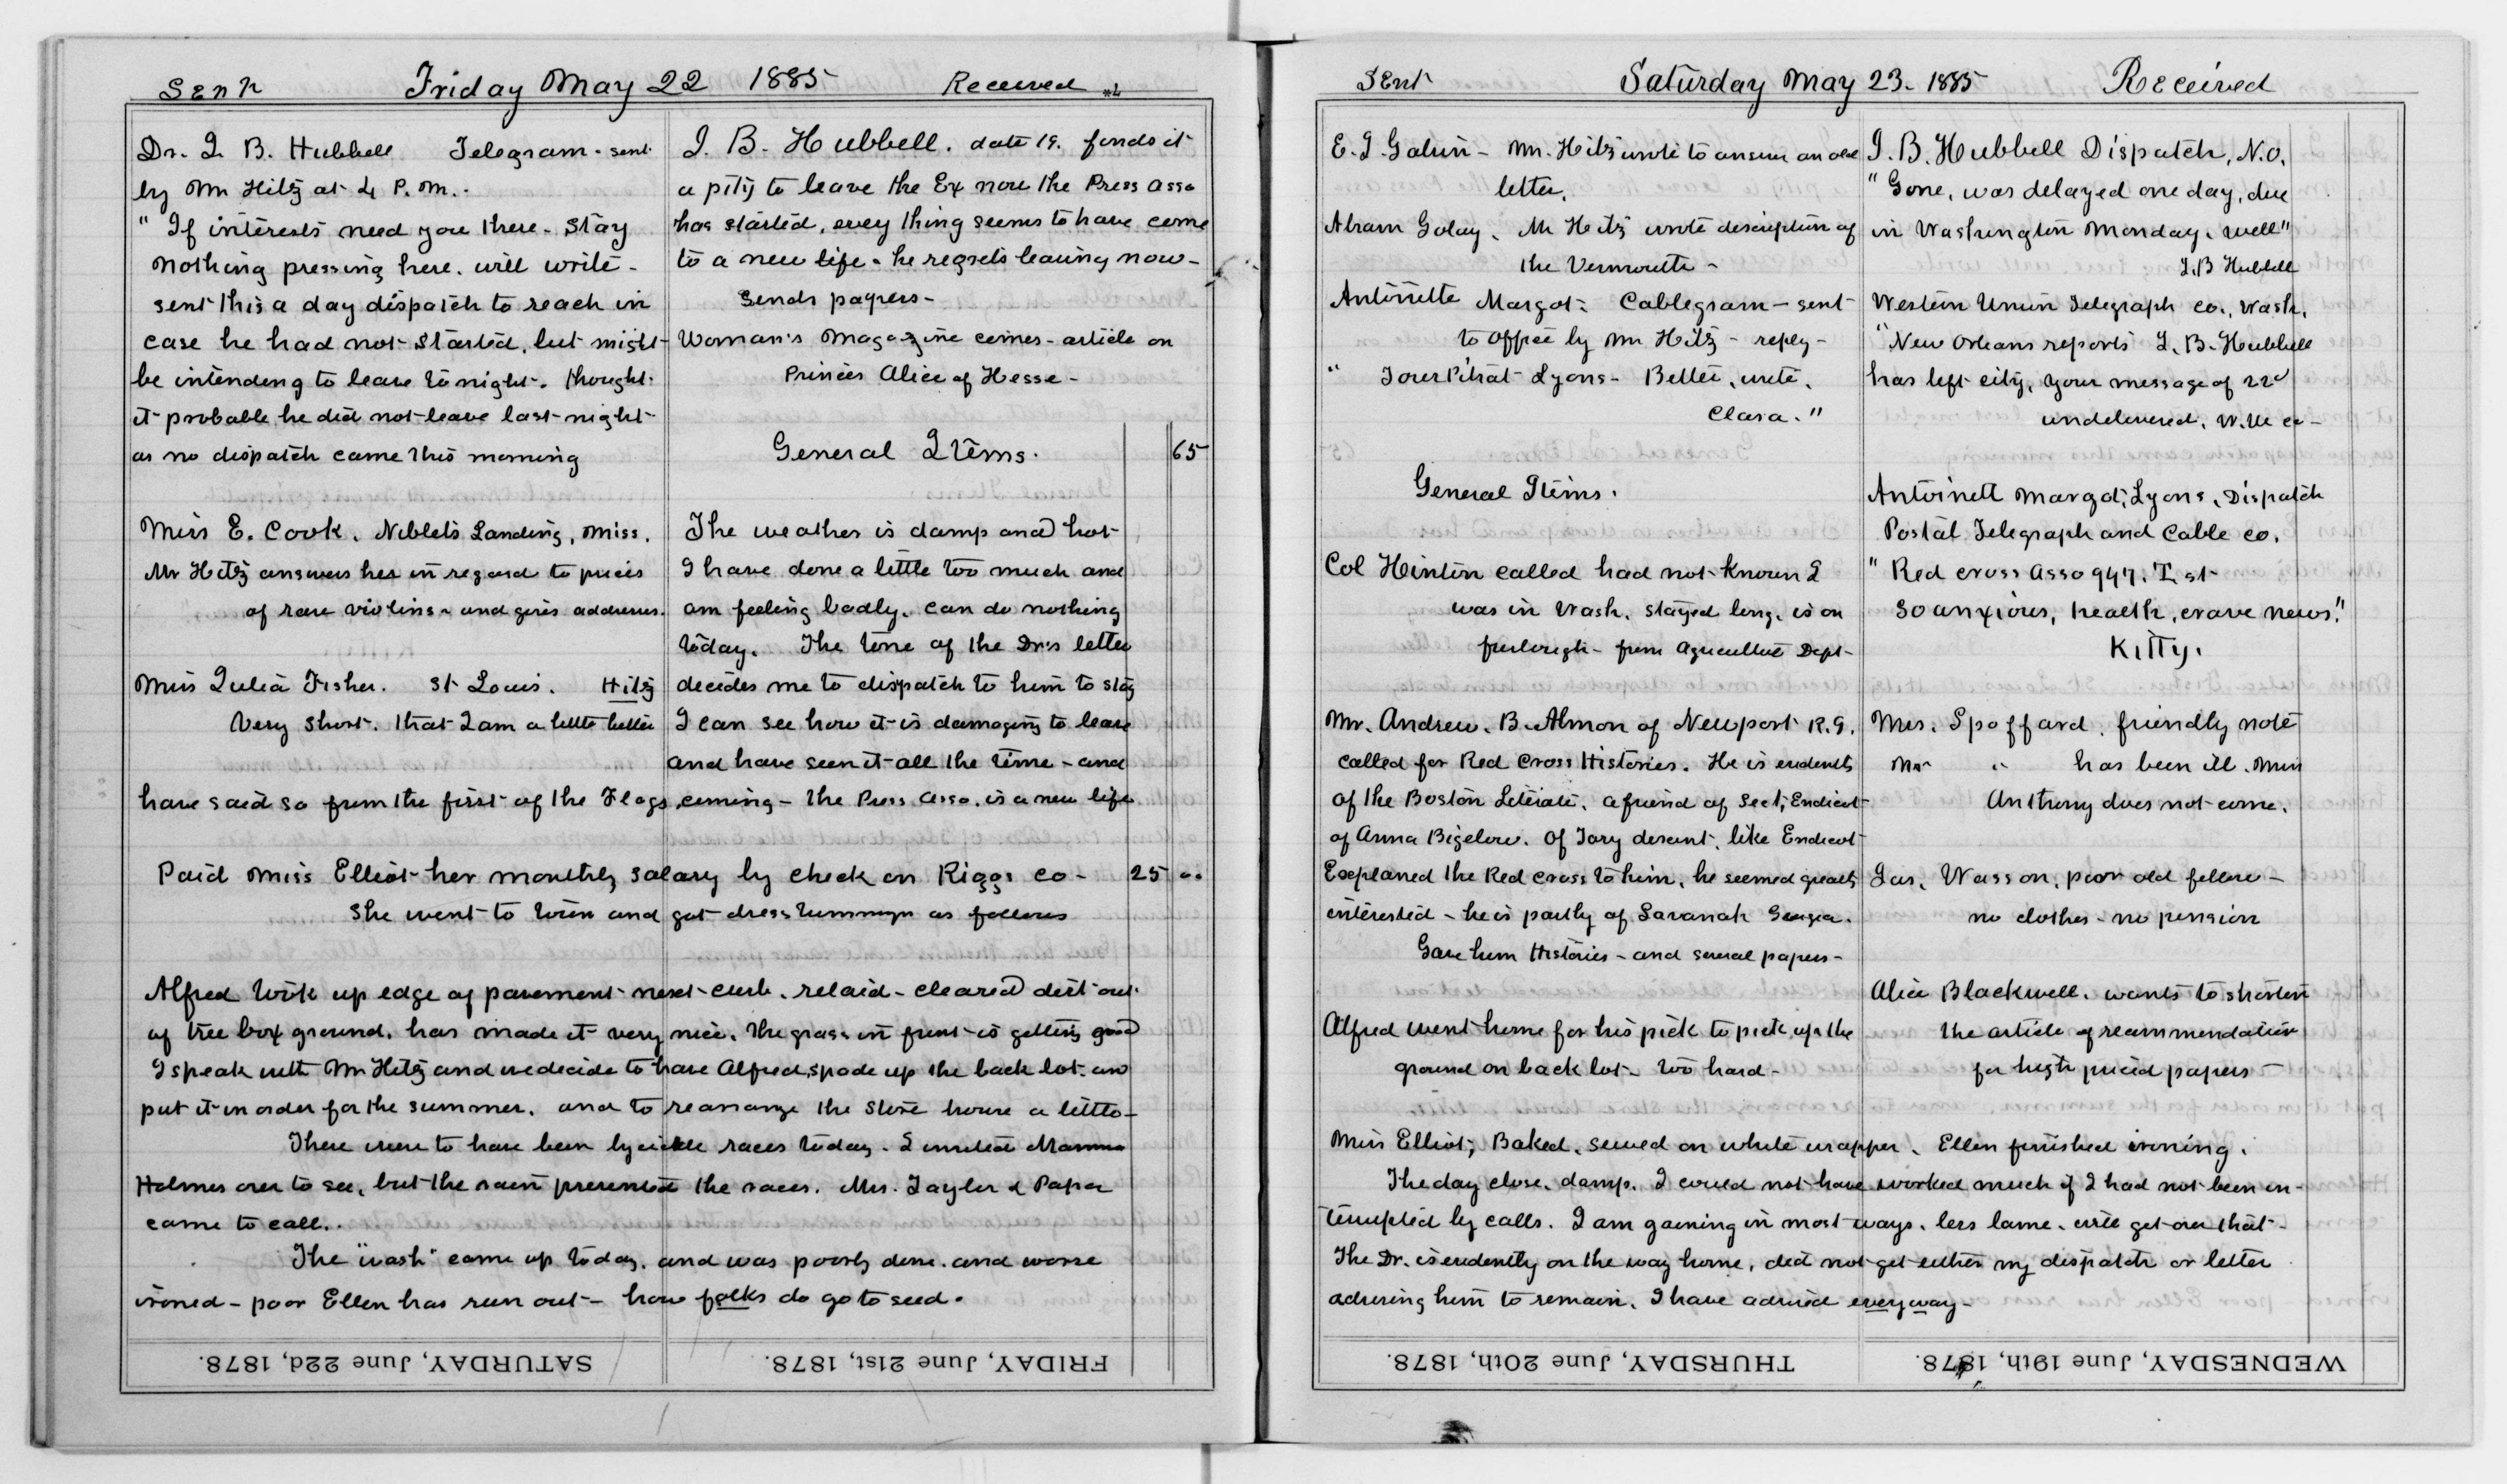 Sent Friday May 22 1885 Received
Dr. J. B. Hubbell Telegram - sent
by Mr Hitz at 4 P.M.
" If interests need you there - Stay
nothing pressing here. will write -
sent this a day dispatch to reach in
case he had not started, but might
be intending to leave tonight. thought
it probable he did not leave last night
as no dispatch came this morning
Miss E. Cook. Niblets Landing, Miss.
Mr Hitz answers her in regard to prices
of rare violins - and gives addresses.
Miss Julia Fisher. St Louis. Hitz
Very short. that I am a little better
J. B. Hubbell. date 19. finds it
a pity to leave the Ex now the Press Asso
has started, every thing seems to have come
to a new life - he regrets leaving now -
Sends papers -
Woman's Magazine comes - article on
Princes Alice of Hesse -
General Items. 65
The weather is damp and hot
I have done a little too much and
am feeling badly. can do nothing
today. The tone of the Dr's letter
decides me to dispatch to him to stay
I can see how it is damaging to leave
and have seen it all the time - and
have said so from the first of the Flags coming - the Press Asso. is a new life
Paid Miss Elliot her monthly salary by check on Riggs co - 25 00
She went to town and got dress trimmings as follows
Alfred took up edge of pavement next curb. relaid - cleared dirt out
of tree box ground. has made it very nice. the grass in front is getting good
I speak with Mr Hitz and we decide to have Alfred spade up the back lot. and
put it in order for the summer. and to rearrange the store house a little -
There were to have been bycickle races today. I invited Mamma
Holmes over to see, but the rain prevented the races. Mrs. Taylor & Papa
came to call.
The "wash" came up today. and was poorly done. and worse
ironed - poor Ellen has run out - how folks do go to seed.
SATURDAY, June 22d, 1878. FRIDAY, June 21st, 1878.
Sent Saturday May 23. 1885 Received
E. J. - Mr. Hitz wrote to answer an old
letter.
Abram Golay. Mr Hitz wrote description of
the Vermouth -
Antoinette Margot. Cablegram - sent
to office by Mr Hitz - reply -
" Lyons - Better, write.
Clara."
General Items.
Col Hinton called had not known I
was in Wash. stayed long. is on
furlough - from Agriculture Dept -
Mr. Andrew. B. Almon of Newport R.I.
called for Red Cross Histories. He is evidently
of the Boston Literati. a friend of Sect, Endicot
of Anna Bigelow. Of Tory descent, like Endicot
Explained the Red Cross to him, he seemed greatly
interested - he is partly of Savanah Georgia.
Gave him Histories - and several papers -
Alfred went home for his pick to pick up the
ground on back lot - too hard -
J. B. Hubbell Dispatch, N.O.
" Gone, was delayed one day, due
in Washington Monday. well"
J.B Hubbell
Western Union Telegraph co., Wash.
"New Orleans reports J. B. Hubbell
has left city, your message of 22d
undelivered. W.U co -
Antoinett Margot, Lyons, Dispatch
Postal Telegraph and Cable co.
" Red cross Asso 947. T st
So anxious, health, crave news."
Kitty.
Mrs. Spofford. friendly note
Mr " has been ill. Miss
Anthony does not come.
Jas. Wasson. poor old fellow -
no clothes - no pension
Alice Blackwell. wants to shorten
the article of reammendation
for high priced papers -
Miss Elliot, Baked, sewed on white wrapper. Ellen finished ironing.
The day close. damp. I could not have worked much if I had not been in-
terrupted by calls. I am gaining in most ways. less lame. will get over that.
The Dr. is evidently on the way home, did not get either my dispatch or letter
advising him to remain. I have advised every way -
THURSDAY, June 20th, 1878. WEDNESDAY, June 19th, 1878.